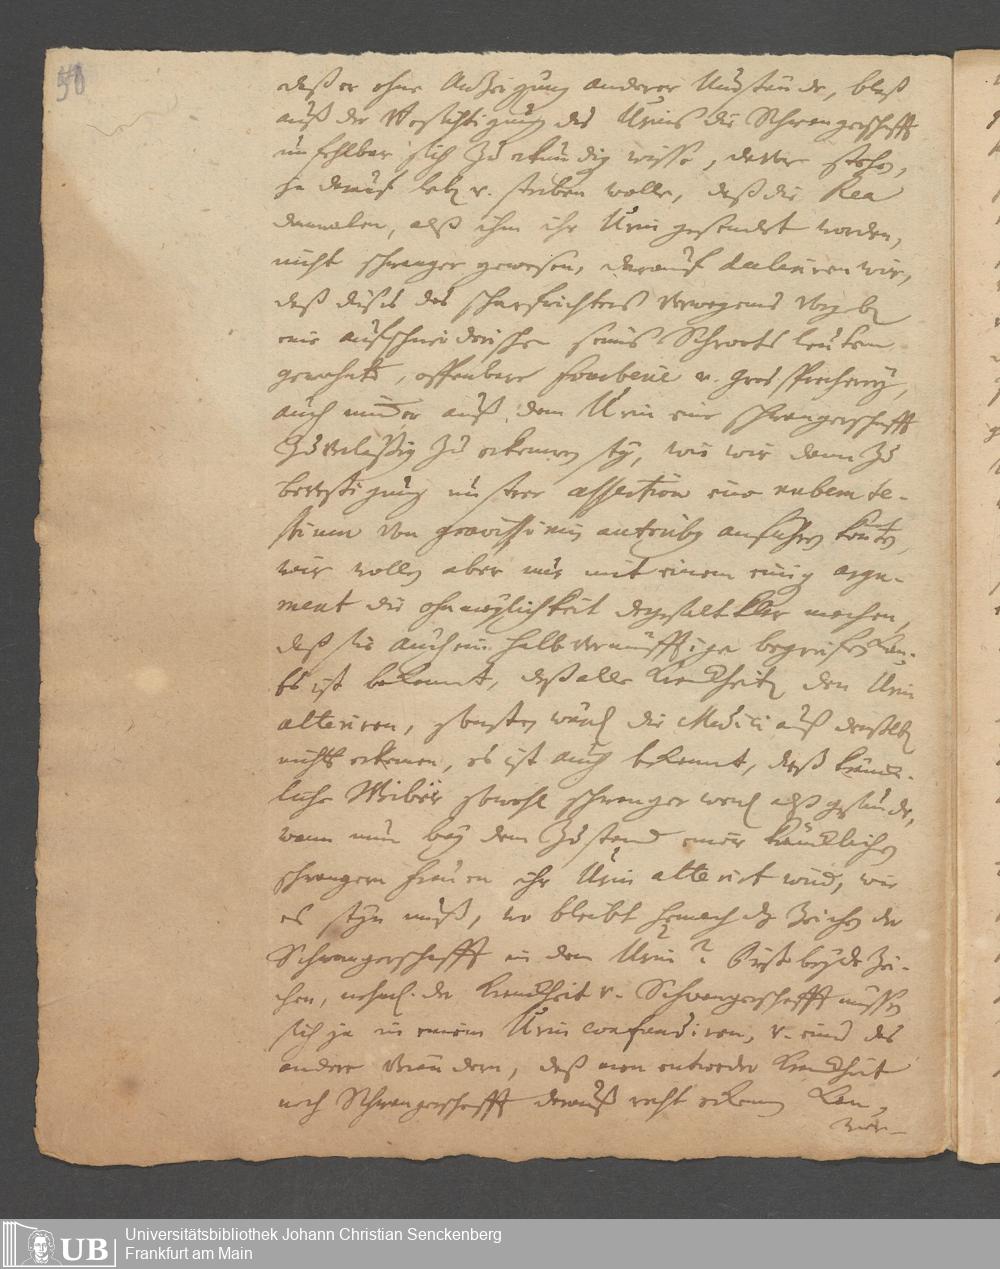 50
daß er ohne Anzeigung anderer Umstände, bloß
auß der Besichtigung des Urins die Schwangerschafft
unfehlbar sich zu erkundig wisse, davor stehe,
ja darauf leb v. sterben wolle, daß die Rea
damalen, alß ihm ihr Urin gesendet worden,
nicht schwanger gewesen, darauf declariren wir,
daß dieses des scharfrichters verwegenes Vorgeb
eine aufschneiderische seines Schroots leuthen
gewohnte, offenbare fourberie v. Gros sprecherey,
auch nie er auß dem Urin eine schwangerschafft
zuverlässig zu erkennen sey, wie wir dann zu
bevestigung unserer assertion eine nubem te-
stium von gravissimis autoribus anführen könten,
wir wollen aber nur mit einem einig argu-
ment die ohnmöglichkeit dergestalt klar machen,
daß sie auch ein halb vernünfftiger begreiffen kan.
Es ist bekannt, daß alle Krankheiten den Urin
alteriren, sonsten würd die Medici auß denselben
nichts erkennen, es ist auch bekannt, daß kränk-
liche Weiber sowohl schwanger werd alß gesunde,
wann nun bey dem Zustand einer kränklichen
schwangern frauen ihr Urin alterirt wird, wie
es seyn muß, wo bleibt hernach das Zeichen der
Schwangerschafft in dem Urin? Diese beyde Zei-
chen, nehml. der Krankheit v. Schwangerschafft müssen
sich ja in einem Urin confundiren, v. eines das
andere verändern, daß man entweder Krankheit
noch Schwangerschafft darauß recht erkennen kan,
Universitätsbibliothek Johann Christian Senckenberg
Frankfurt am Main
UB